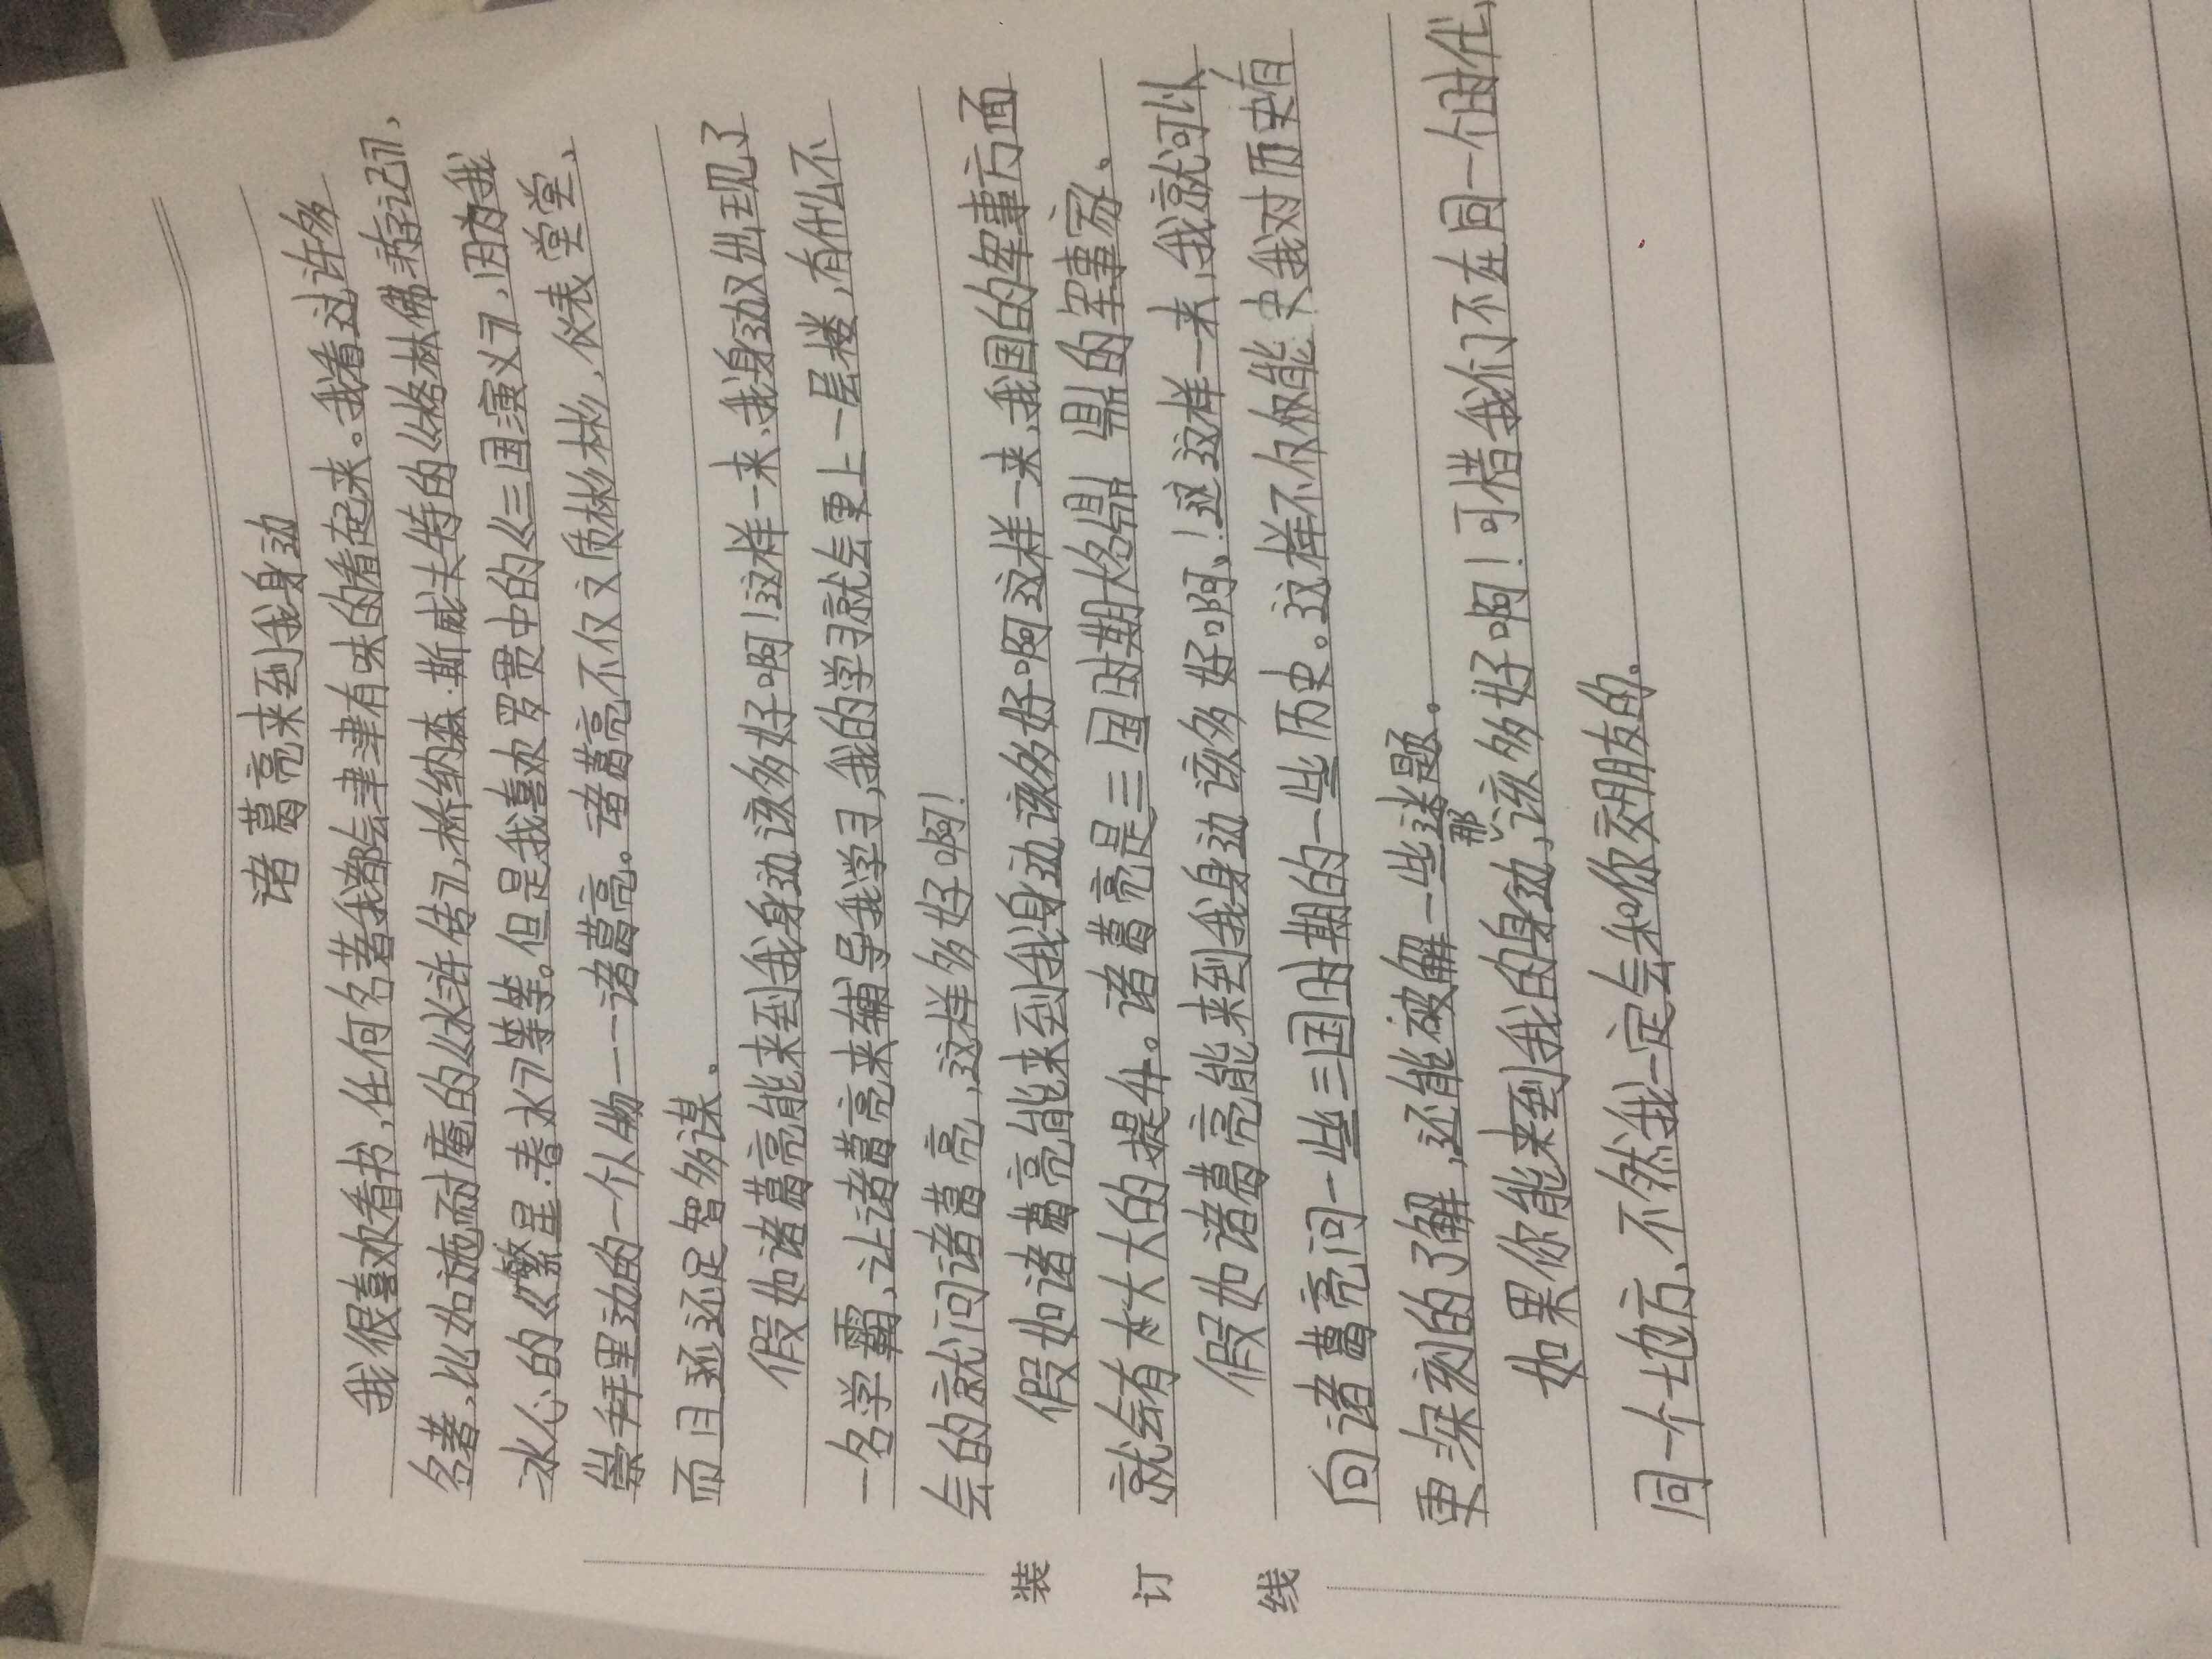 诸葛亮来到我身边
我很喜欢看书,任何名著我都会津津有味的看起来。我看过许多
名著,比如施耐庵的《水浒传》,桥纳森·斯威夫特的《格林佛游记》、
冰心的《繁星·春水》等等。但是我喜欢罗贯中的《三国演义》,因为我
崇拜里边的一个人物——诸葛亮。诸葛亮不仅文质彬彬,仪表堂堂、
而且还足智多谋。
假如诸葛亮能来到我身边该多好啊!这样一来,我身边又出现了
一名学霸,让诸葛亮来辅导我学习,我的学习就会更上一层楼,有什么不
会的就问诸葛亮,这样多好啊!
假如诸葛亮能来到我身边该多好啊这样一来,我国的军事方面
就会有大大的提升。诸葛亮是三国时期大名鼎鼎的军事家。
假如诸葛亮能来到我身边该多好啊!这样一来,我就可以
向诸葛亮问一些三国时期的一些历史。这样不仅能史我对历史有
更深刻的了解,还能破解一些谜题。
如果你能来到我的身边,那该多好啊!可惜我们不在同一个时代,
同一个地方,不然我一定会和你交朋友的。
装
订
线